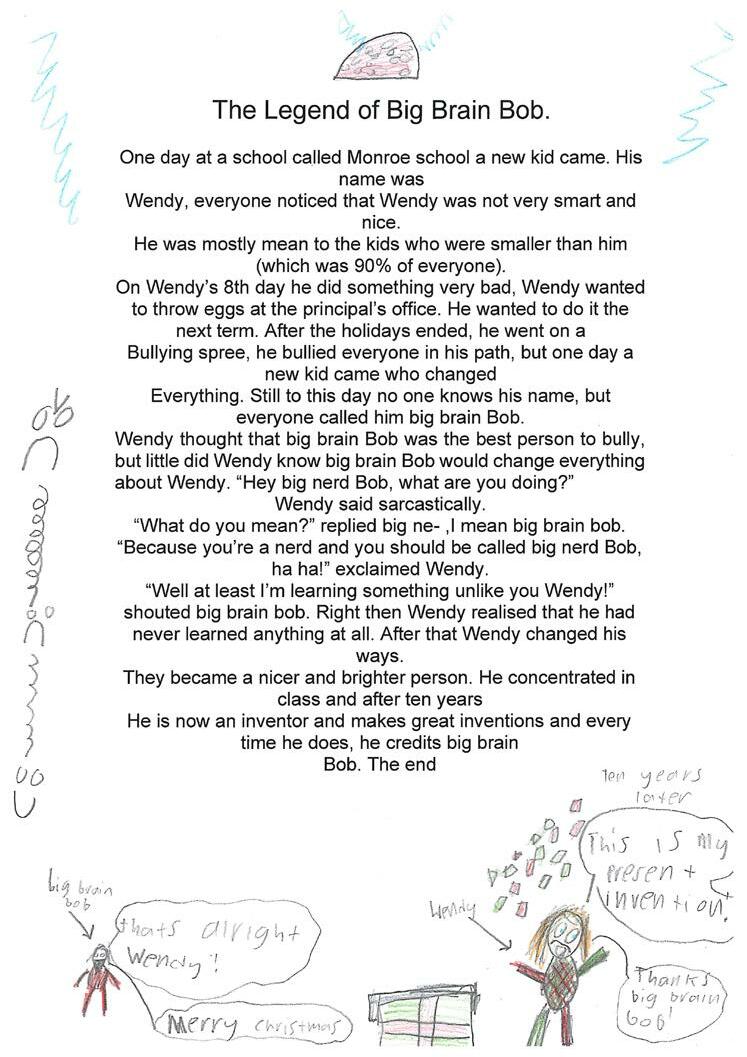 The Legend of Big Brain Bob.
One day at a school called Monroe school a new kid came. His
name was
Wendy, everyone noticed that Wendy was not very smart and
nice.
He was mostly mean to the kids who were smaller than him
(which was 90% of everyone).
On Wendy’s 8th day he did something very bad, Wendy wanted
to throw eggs at the principal’s office. He wanted to do it the
next term. After the holidays ended, he went on a
Bullying spree, he bullied everyone in his path, but one day a
new kid came who changed
Everything. Still to this day no one knows his name, but
everyone called him big brain Bob.
Wendy thought that big brain Bob was the best person to bully,
but little did Wendy know big brain Bob would change everything
about Wendy. “Hey big nerd Bob, what are you doing?”
Wendy said sarcastically.
“What do you mean?” replied big ne- ,I mean big brain bob.
“Because you’re a nerd and you should be called big nerd Bob,
ha ha!” exclaimed Wendy.
“Well at least I’m learning something unlike you Wendy!”
shouted big brain bob. Right then Wendy realised that he had
never learned anything at all. After that Wendy changed his
ways.
They became a nicer and brighter person. He concentrated in
class and after ten years
He is now an inventor and makes great inventions and every
time he does, he credits big brain
Bob. The end
ten years
later
This is my
present
invention!
big brain
bob
thats alright
Wendy!
Merry christmas
Wendy
Thanks
big brain
bob!